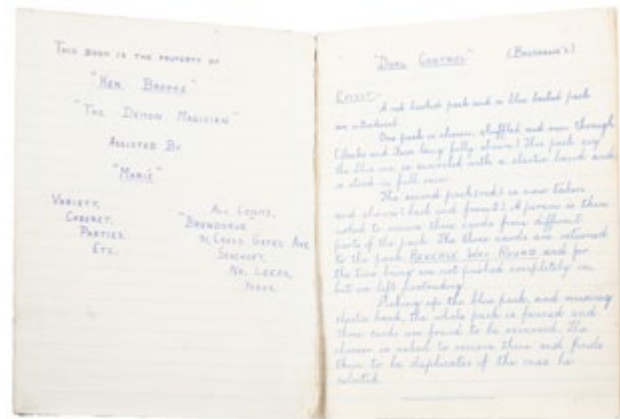 THIS BOOK IS THE PROPERTY OF
"KEN BROOKE"
"THE DEMON MAGICIAN"
ASSISTED BY
"MARIE"
VARIETY,
CABARET,
PARTIES,
ETC,
ALL COMMS,
"BRUNDSKUE
CROSS GATES AVE,
SEACROFT,
NR. LEEDS,
YORKS.
"DUAL CONTROL"
EFFECT:-
A red backed pack and a blue backed pack
are introduced.
One pack is chosen, shuffled and run through
(backs and faces being fully shown) This pack say
the blue one, is encircled with a elastic band and
is stood in full view.
The second pack (red) is now taken
and shown (back and front). A person is then
asked to remove three cards from different
parts of the pack. The three cards are returned
to the pack, REVERSE WAY ROUND and for
the time being are not pushed completely in,
but are left protruding.
Picking up the blue pack, and removing
elastic band, the whole pack is fanned and
three cards are found to be reversed. The
chooser is asked to remove them and finds
them to be duplicates of the ones he
selected.